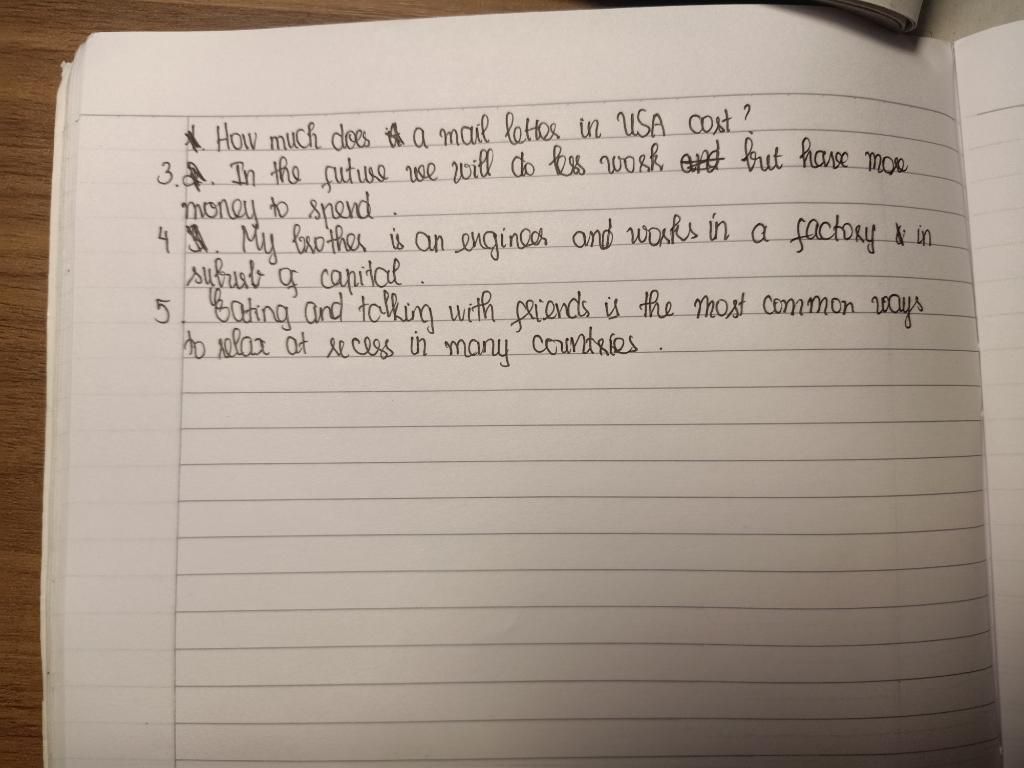 How much does a mail letter in USA cost?
3. In the future we will do less work and but have more
money to spend.
4 . My brother is an engineer and works in a factory in
suburb of capital.
5. Eating and talking with friends is the most common ways
to relax at recess in many countries.